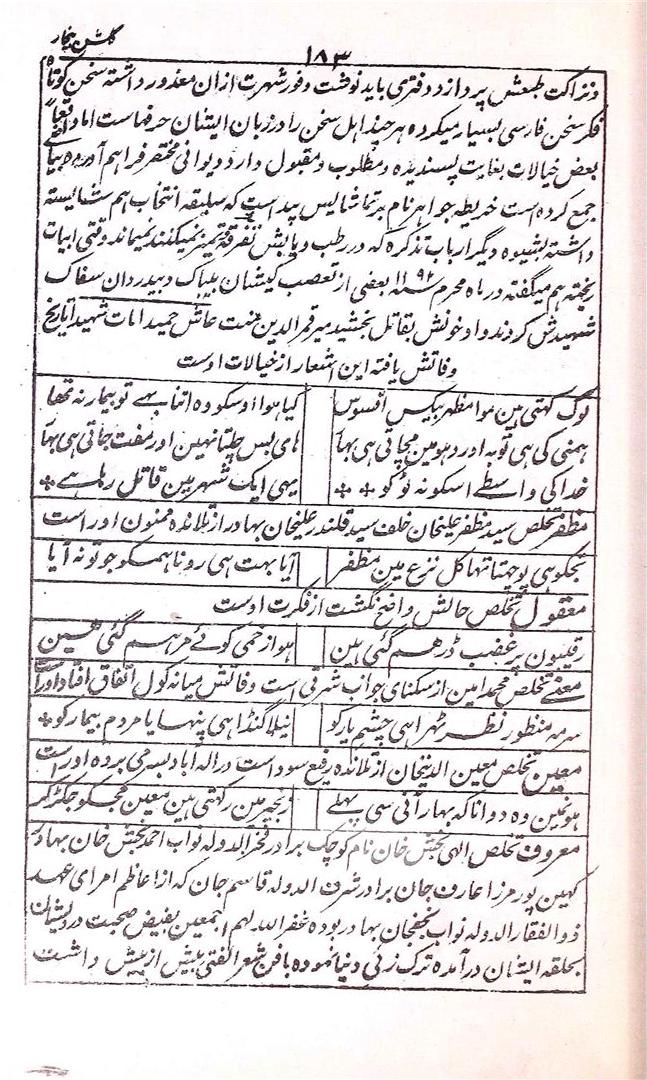 گلشن بیخار
۱۸۳
ونزاکت طبعش پردازد دفتری باید نوشت وفور شهرت ازان معذور داشته سخن کوتاه
فکر سخن فارسی بسیار میکرده هرچند اهل سخن را در زبان ایشان حرفهاست اما دقعاً
بعض خیالات بغایت پسندیده و مطلوب و مقبول دارد دیوانی مختصر فراهم آورده
جمع کرده است خریطه جواهر نام بر تماشائیش پیداست که سلیقه انتخاب هم شایسته
داشته بشیوه دیگر ارباب تذکره که در رطب و یابس تفرقه و تمیز نمیکنند نمیماند وقتی ابیات
ریخته هم میگفته در ماه محرم سنه ۱۱۹۲ بعضی از تعصب کیشان بیباک و بیدردان سفاک
شهیدش کردند و او خونش بقاتل بخشید میر قمرالدین منت عاش حمیدا مات شهیدا تاریخ
وفاتش یافته این اشعار از خیالات اوست
لوگ کہتی ہین موا مظہر بیکس افسوس کیا ہوا اوسکو وہ اتنا بہے تو بیمار نہ تھا
ہمنی کی ہی توبہ اور دہومین مچاتی ہی بہا ہای بس چلتا نہین اور مفت جاتی ہی بہا
خدا کی واسطے اسکو نہ ٹوکو یہی ایک شہر مین قاتل رہا ہے
مظفر تخلص سید مظفر علیخان خلف سید قلندر علیخان بهادر از تلامذه ممنون اوراست
تجکو ہی پوچھتا تہا کل نزع مین مظفر آیا بہت ہی رونا ہمسکو جو تو نہ آیا
معقول تخلص حالش واضح نگشت از فکرت اوست
رقیبون پر غضب ڈر ہم گئی ہین ہوا زخمی کوئے مر ہم گئی ہین
معنے تخلص محمد امین از سکنای جواب شرقی است وفاتش میانه کول اتفاق افتاد اوراست
سرمہ منظور نظر ٹہرا ہی چشم یار کو نیلا گنڈا ہی پنہایا مردم بیمار کو
معین تخلص معین الدینخان از تلامذه رفیع سوداست در اله آباد بسر می برده اوراست
ہونمین وہ دوانا کہ بہار آنی سی پہلے زنجیر مین رکہتی ہین معین مجکو جکڑ کر
معروف تخلص الهی بخش خان نام کوچک برادر فخرالدوله نواب احمد بخش خان بهادر
کهین پور مرزا عارف جان برادر شرف الدوله قاسم جان که از اعاظم امرای عهد
ذوالفقار الدوله نواب نجفخان بهادر بوده غفر الله لهم اجمعین بفیض صحبت درویشان
بحلقه ایشان در آمده ترک زئی دنیا نموده بافن شعر الفتی بیش از بیش داشت